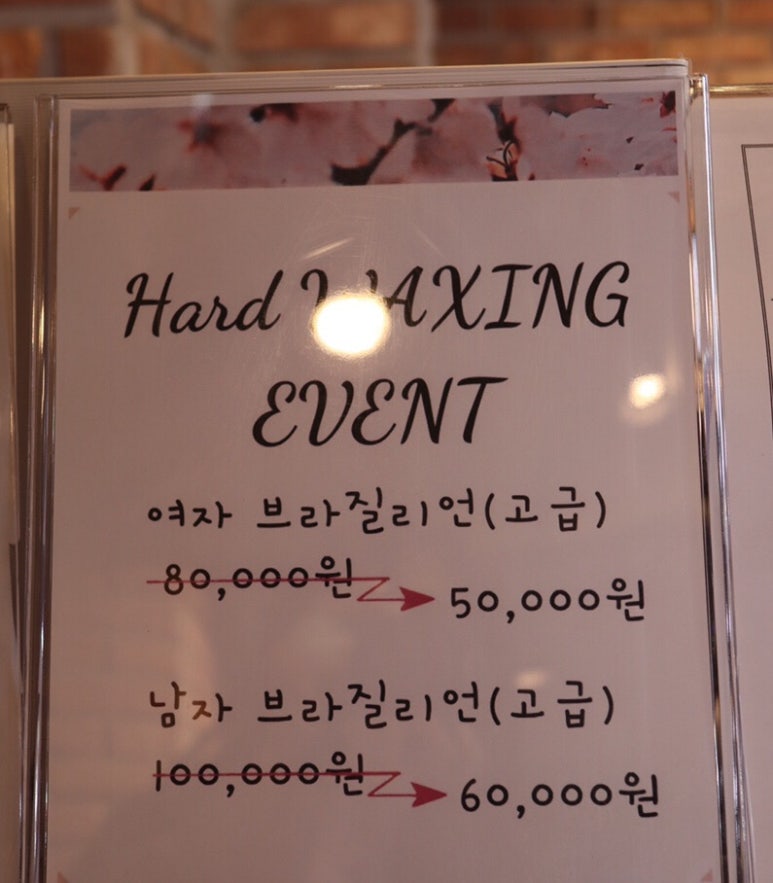 Hard WAXING
EVENT
여자 브라질리언(고급)
80,000원 50,000원
남자 브라질리언(고급)
100,000원 60,000원